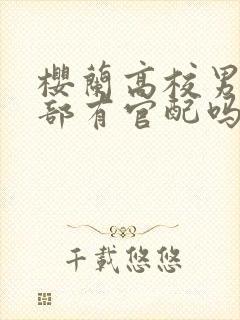 櫻蘭高校男
部有官配吗
千載悠悠